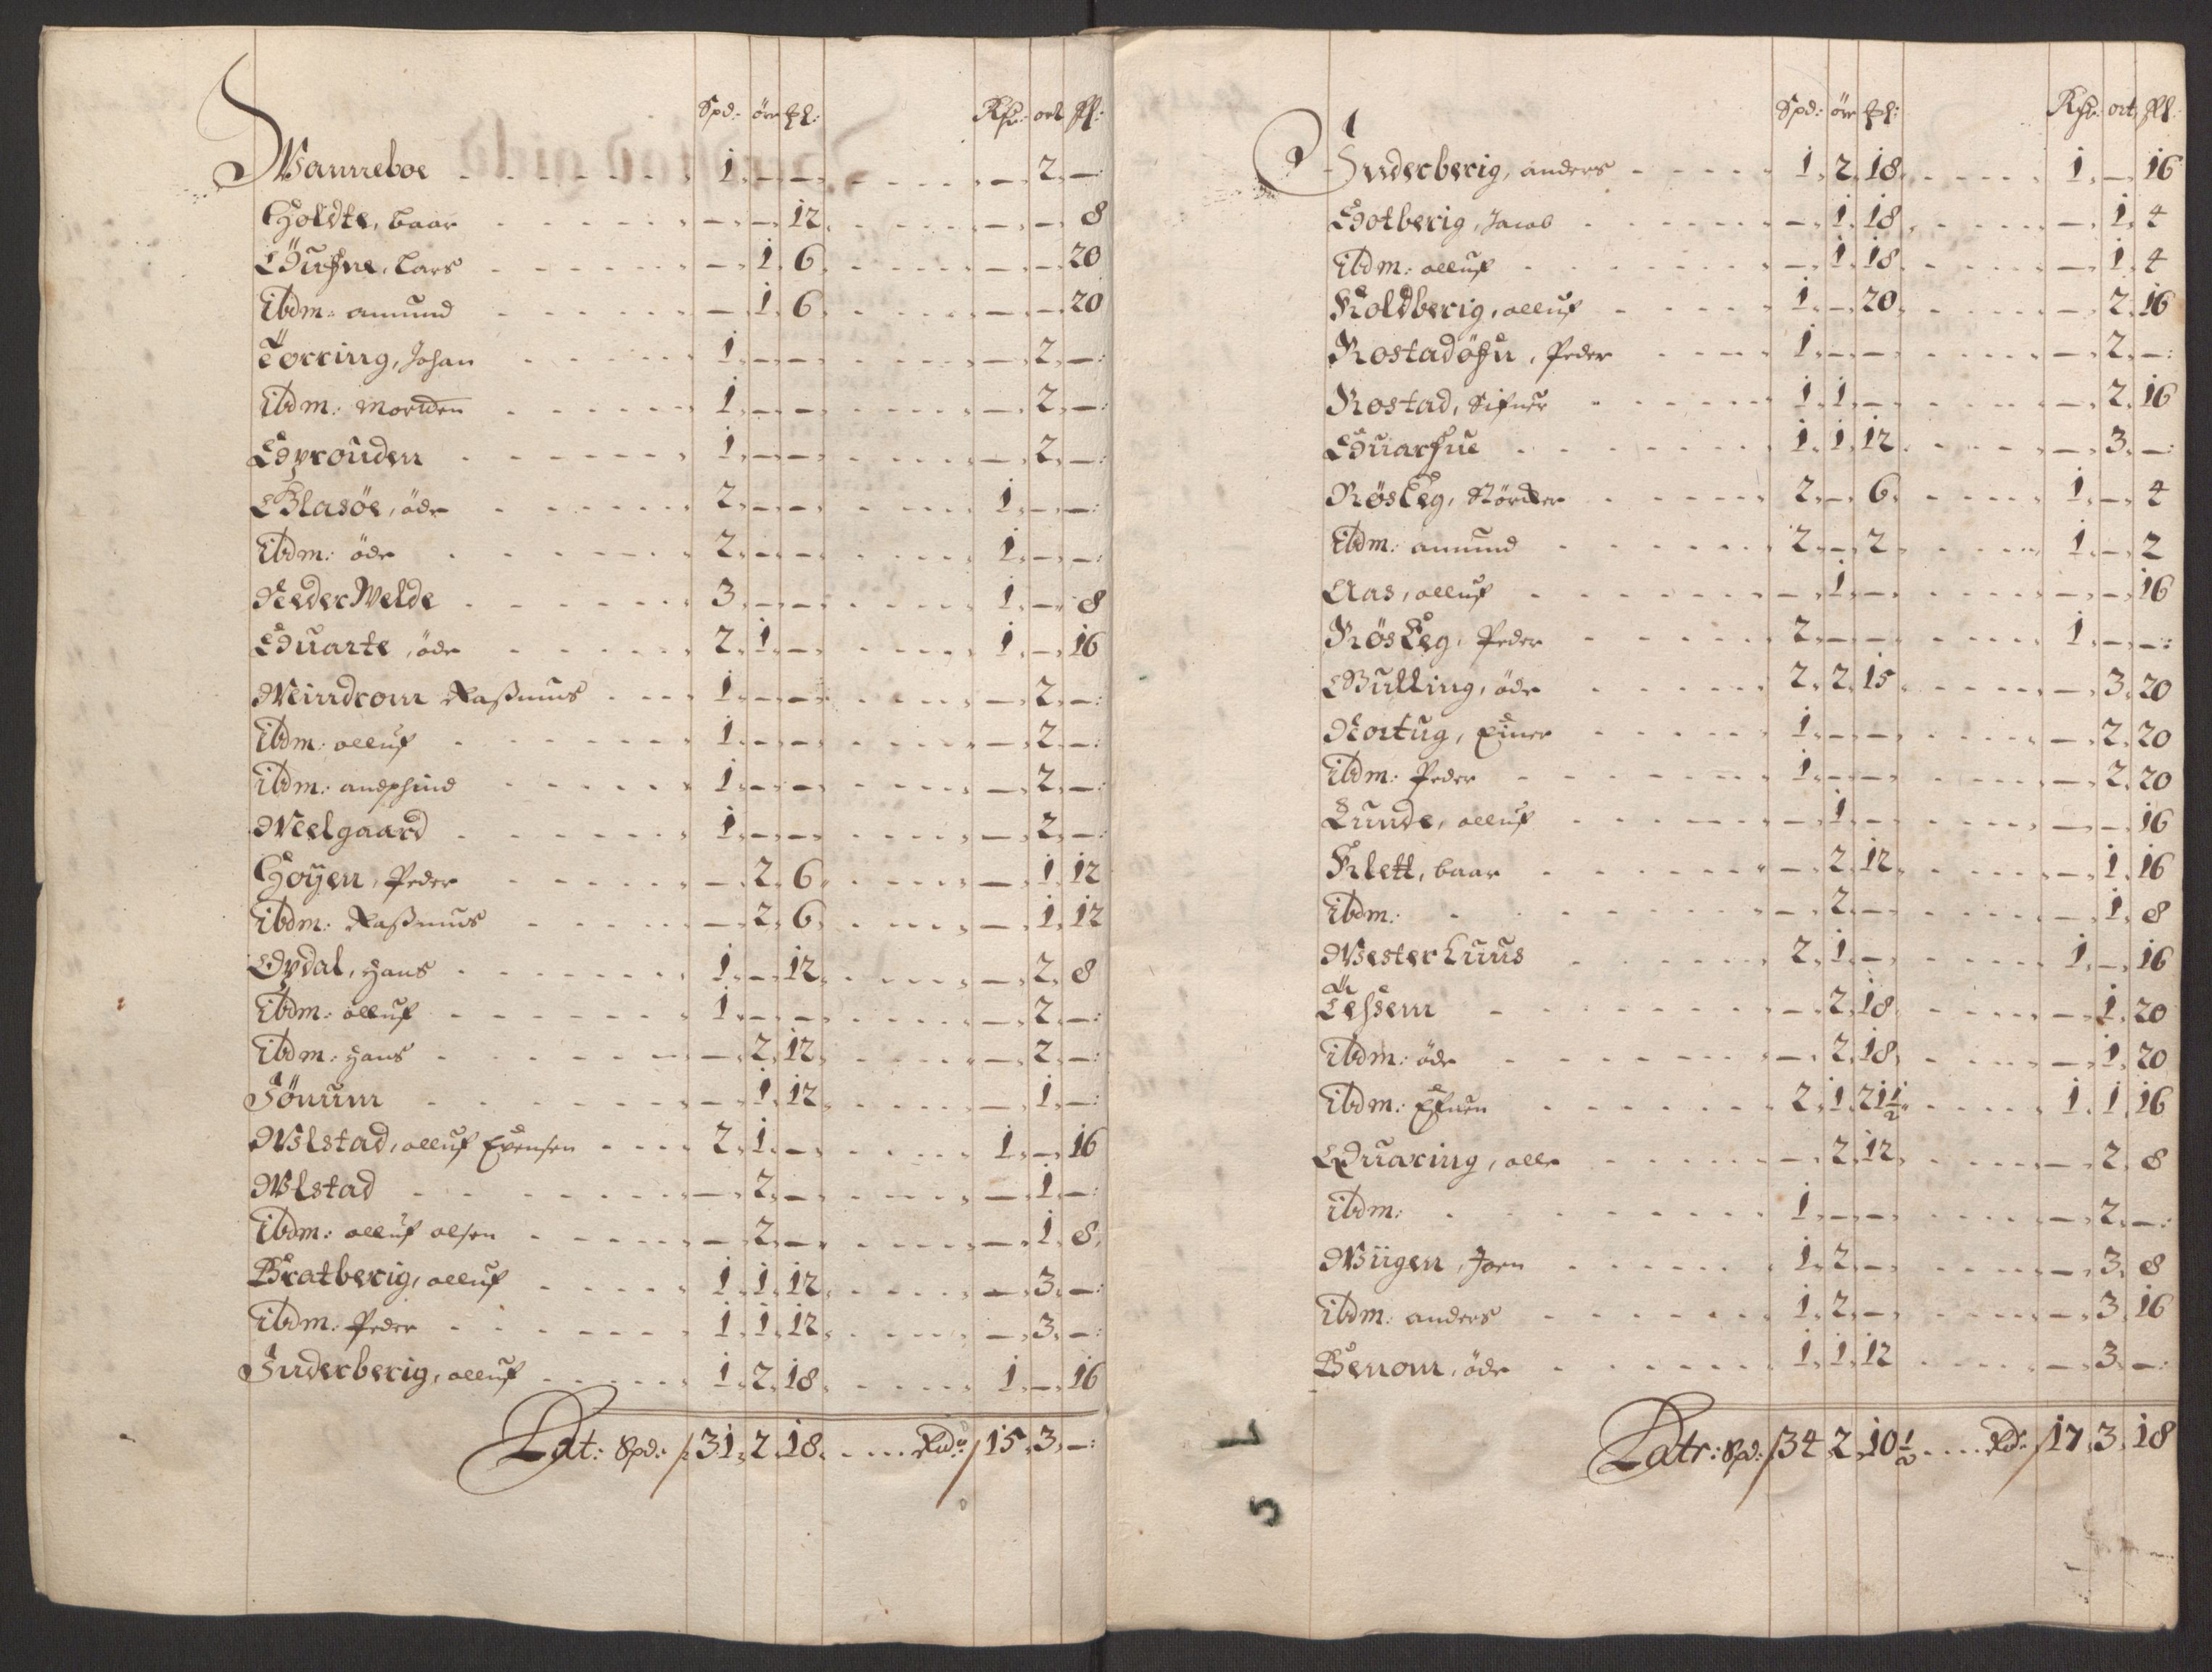 Spd: ör ꝑl: Rhr: ort ſſl:
Wanneboe 1. – – – 2. –:
Holdte, baar – – 12. – – 8
Duhne, Lars – 1. 6. – – 20
Ibdm: amund – 1. 6. – – 20
Törring, Johan 1. – – – 2. –:
Ibdm: Morten 1. – – – 2. –:
Sprouden 1. – – – 2. –:
Blasöe, öde 2. – – 1. – –:
Ibdm: öde 2. – – 1. – –:
Neder Welde 3. – – 1. – 8
Duarte, öde 2. 1. – 1. – 16
Mindrom Raßmus 1. – – – 2. –:
Ibdm: olluf 1. – – – 2. –:
Ibdm: andphind 1. – – – 2. –:
Melgaard 1. – – – 2. –:
Hoÿen, Peder – 2. 6. – 1. 12
Ibdm: Raßmus – 2. 6. – 1. 12
Opdal, Hans 1. – 12. – 2. 8
Ibdm: olluf 1. – – – 2. –:
Ibdm: Hans – 2. 12. – 2. –:
Jönum – 1. 12. – 1. –:
Wlstad, olluf Evensen 2. 1. – 1. – 16
Wlstad – 2. – – 1. –:
Ibdm: olluf olsen – 2. – – 1. 8.
Bratberig, olluf 1. 1. 12. – 3. –:
Ibdm: Peder 1. 1. 12. – 3. –:
Inderberig, olluf 1. 2. 18. 1. – 16
Lat: Spd: 31. 2. 18. Rdr 15. 3. –:
Spd: ör ꝑl: Rhr: ort ſſl:
Inderberig, anders 1. 2. 18. 1. – 16
Hotberig, Jacob – 1. 18. – 1. 4
Ibdm: olluf – 1. 18. – 1. 4
Koldberig, olluf 1. – 20. – 2. 16
Rostadöhn, Peder 1. – – – 2. –:
Rostad, Sifuer 1. 1. – – 2. 16
Duarhue 1. 1. 12. – 3. –:
Rösseg, Störcker 2. – 6. 1. – 4
Ibdm: amund 2. – 2. 1. – 2
Aas, olluf – 1. – – – 16
Rösseg, Peder 2. – – 1. – –:
Bulling, öde 2. 2. 15. – 3. 20
Nortug, Einer 1. – – – 2. 20
Ibdm: Peder 1. – – – 2. 20
Lunde, olluf – 1. – – – 16
Klett, baar – 2. 12. – 1. 16
Ibdm: – 2. – – 1. 8
Wester Luus 2. 1. – 1. – 16
Tessem – 2. 18. – 1. 20
Ibdm: öde – 2. 18. – 1. 20
Ibdm: Efuen 2. 1. 21½. 1. 1. 16
Quaring, olle – 2. 12. – 2. 8
Ibdm: 1. – – – 2. –:
Wiigen, Joen 1. 2. – – 3. 8
Ibdm: anders 1. 2. – – 3. 16
Benom, öde 1. 1. 12 – 3. –:
Latr: Spd: 34. 2. 10½. Rdr 17. 3. 18